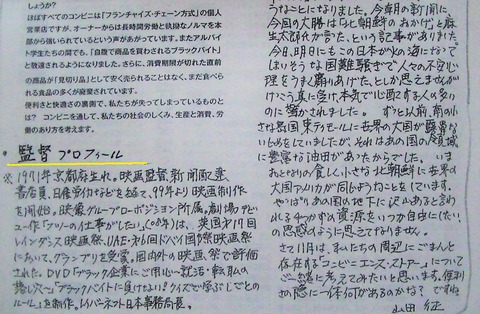 しょうか？
ほぼすべてのコンビニは「フランチャイズ・チェーン方式」の個人
営業店ですが、オーナーからは長時間労働と執拗なノルマを本
部から強いられているという声があがっています。またアルバイ
ト学生たちの間でも、「自腹で商品を買わされるブラックバイト」
と敬遠されるようになりました。さらに、消費期限が切れた直前
の商品が「見切り品」として安く売られることはなく、まだ食べら
れる食品の多くが廃棄されています。
便利さと快適さの裏側で、私たちが失ってしまっているものと
は？ コンビニを通して、私たちの社会のしくみ、生産と消費、労
働のあり方を考えます。
・監督プロフィール
※1971年京都府生れ。映画監督。新聞配達、
書店員、日雇労働などを経て、99年より映画制作
を開始。映像グループローポジション所属。劇場デビ
ュー作「フツーの仕事がしたい」(2008年)は、英国 第17回
レインダンス映画祭、UAE・第5回ドバイ国際映画祭
において、グランプリを受賞。国内外の映画祭で評価
された。DVD「ブラック企業にご用心〜就活・転職の
落し穴〜」「ブラックバイトに負けない! クイズで学ぶしごとの
ルール」を制作。レイバーネット日本事務局長。
うなことになりました。今朝の新聞に、
今回の大勝は「北朝鮮のおかげ」と麻
生太郎氏が言った、という記事がありました。
今日、明日にもこの日本が火の海になって
しまいそうな国難騒ぎで人々の不安心
理をうまく煽りあげた、としか思えませんが
けっこう真に受け、本気で心配する人の多い
のに驚かされました。 ずっと以前、南の小
さな島国 東ティモールに世界の大国が
いじめをしていましたが、それはあの国の領域
に豊富な油田があったからでした。 いま
おとなりの貧しい小さな北朝鮮に世界の
大国アメリカが同じようなことをしています。
やっぱりあの国の地下に沢山あると言
われるすべての資源をいつか自由にしたい、
の思惑のように思えてなりません。
さて11月は、私たちの周辺にごまんと
存在する「コンビニエンス・ストアー」について
ご一緒に考えてみたいと思います。便利
さの陰に一体何があるのかな？ ですね
山田 征